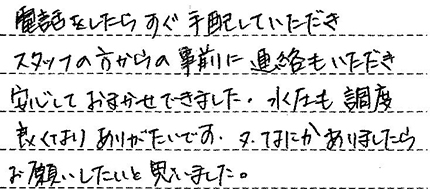 電話をしたらすぐ手配していただき
スタッフの方からの事前に連絡もいただき
安心しておまかせできました。水圧も調度
良くなりありがたいです。又なにかありましたら
お願いしたいと思いました。